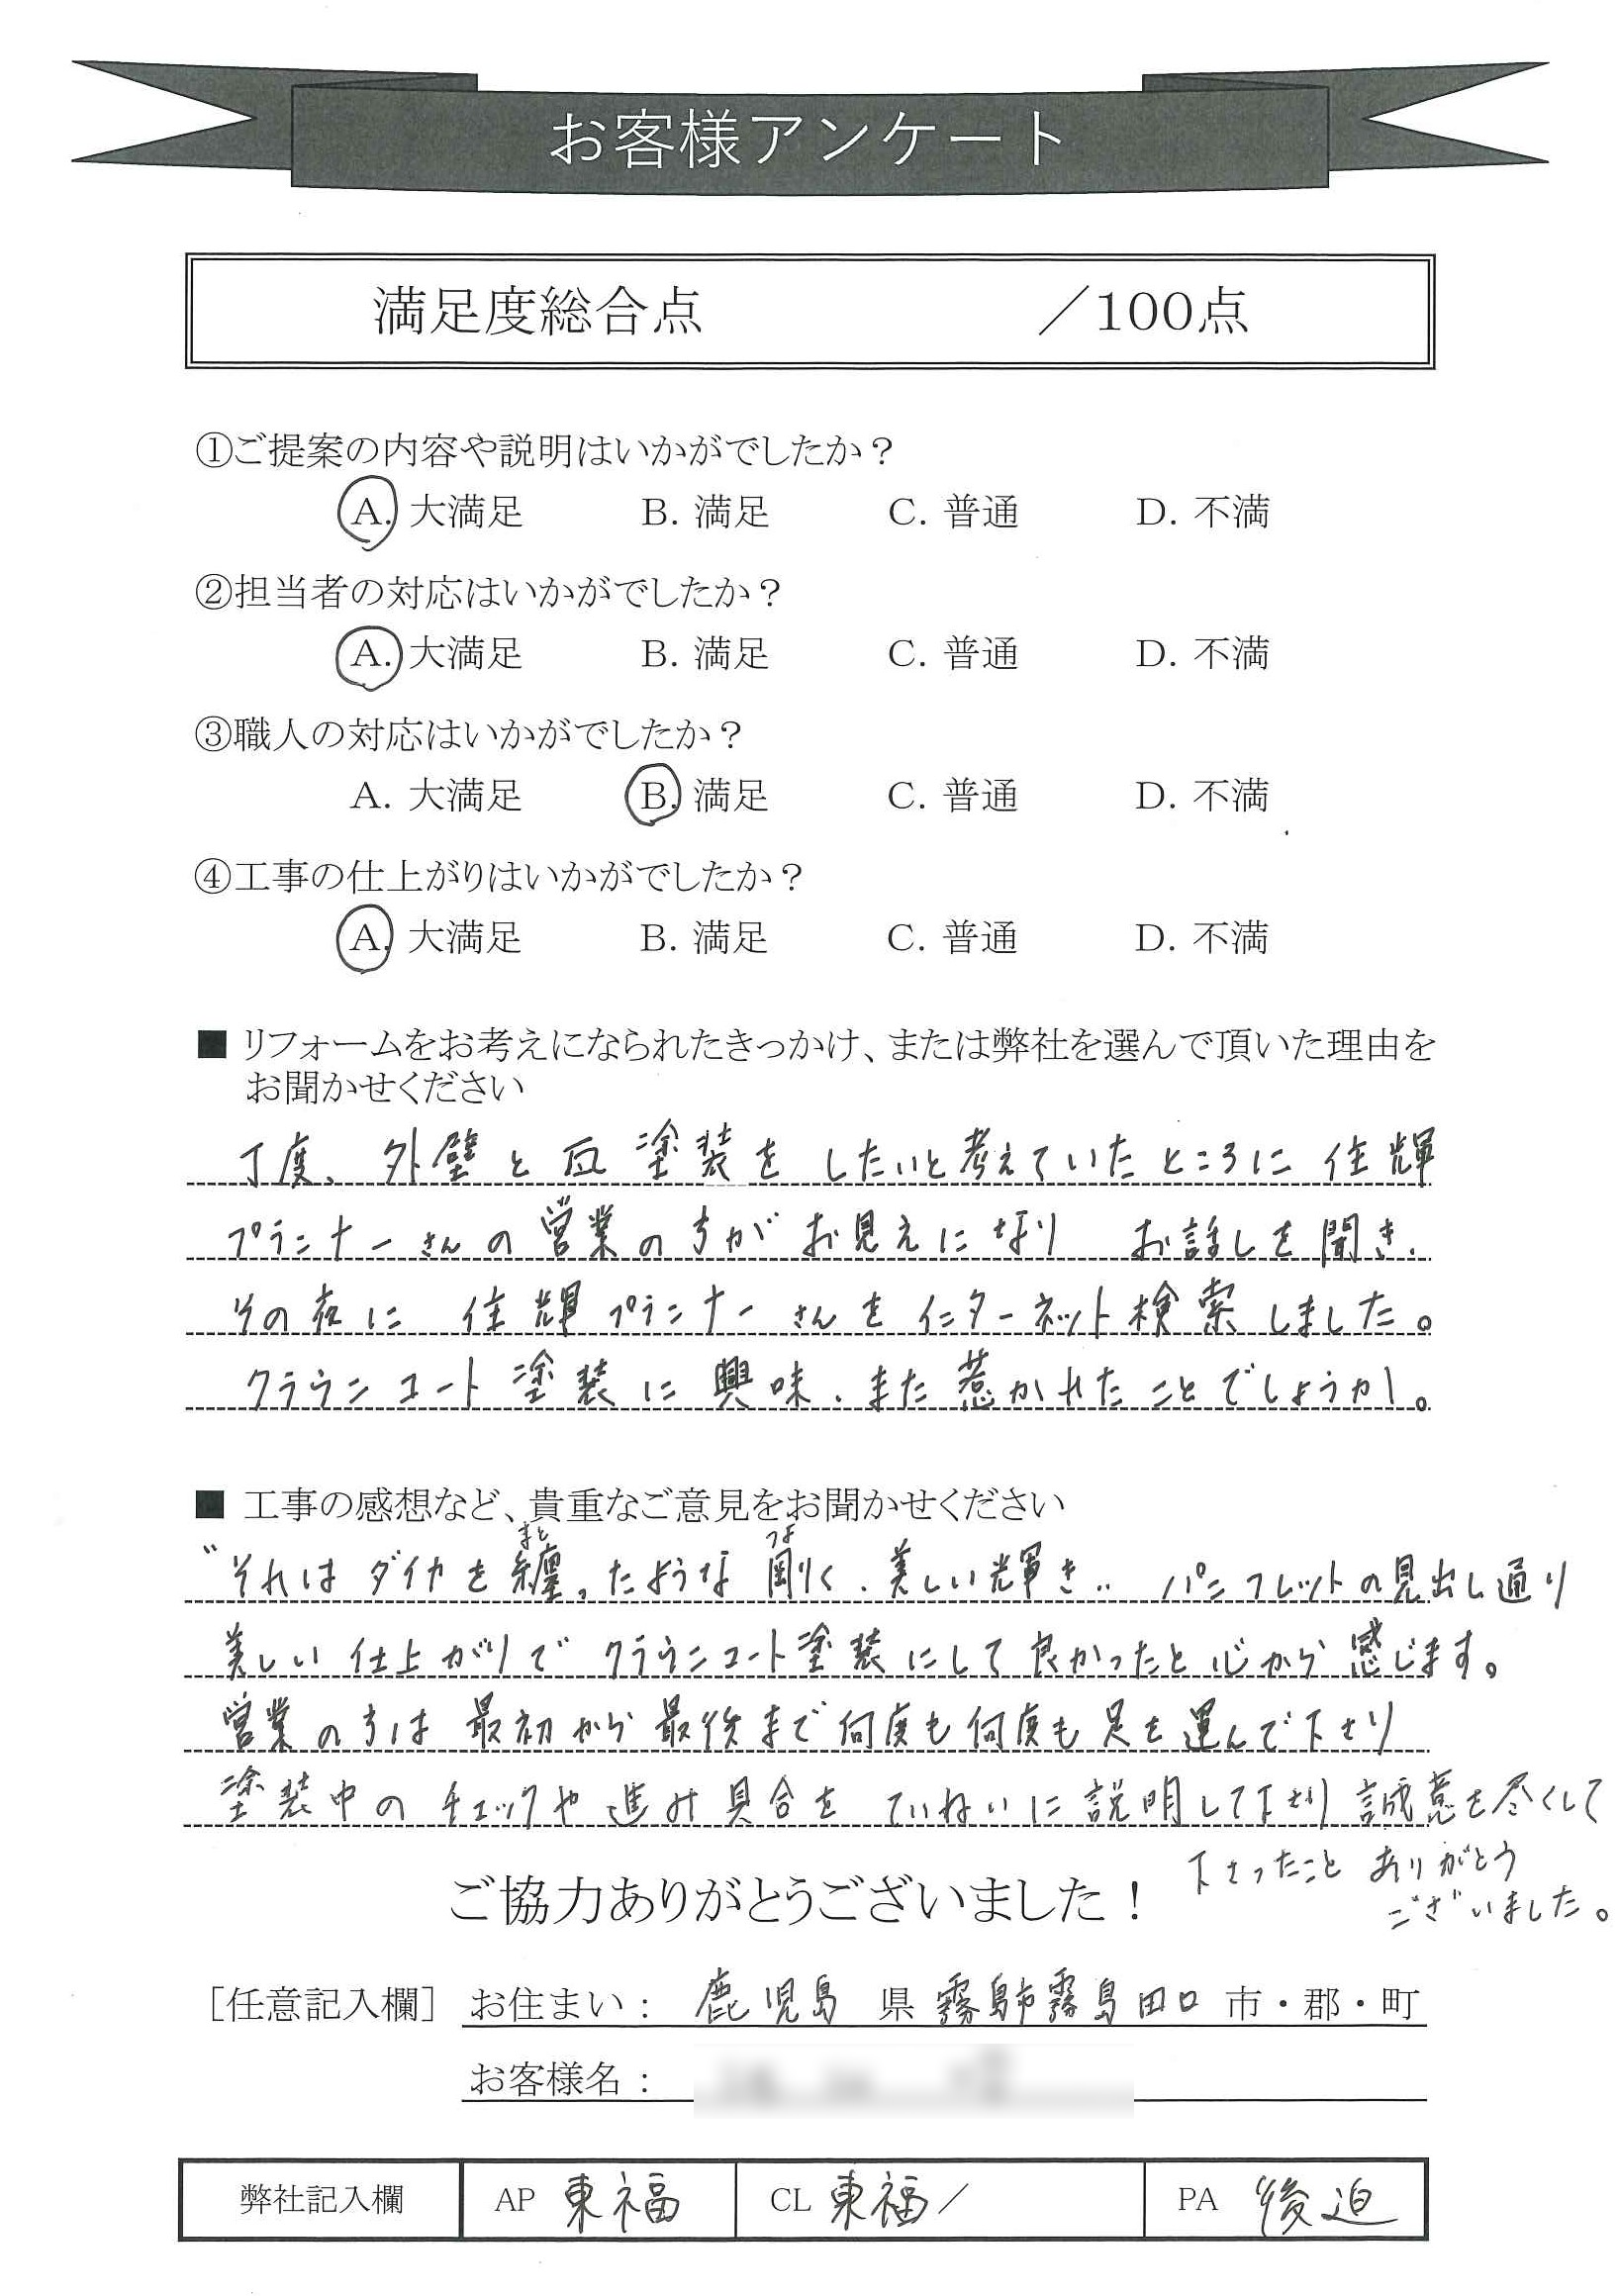 お客様アンケート
満足度総合点 ／100点
①ご提案の内容や説明はいかがでしたか？
A. 大満足 B. 満足 C. 普通 D. 不満
②担当者の対応はいかがでしたか？
A. 大満足 B. 満足 C. 普通 D. 不満
③職人の対応はいかがでしたか？
A. 大満足 B. 満足 C. 普通 D. 不満
④工事の仕上がりはいかがでしたか？
A. 大満足 B. 満足 C. 普通 D. 不満
■ リフォームをお考えになられたきっかけ、または弊社を選んで頂いた理由を
お聞かせください
丁度、外壁と瓦塗装をしたいと考えていたところに住輝
プランナーさんの営業の方がお見えになり お話しを聞き、
その夜に 住輝プランナーさんをインターネット検索しました。
クラウンコート塗装に興味、また惹かれたことでしょうか。
■ 工事の感想など、貴重なご意見をお聞かせください
まと つよ
"それはダイヤを纏ったような剛く、美しい輝き" パンフレットの見出し通り
美しい仕上がりでクラウンコート塗装にして良かったと心から感じます。
営業の方は最初から最後まで何度も何度も足を運んで下さり
塗装中のチェックや進み具合をていねいに説明して下さり誠意を尽くして
下さったこと ありがとう
ございました。
ご協力ありがとうございました！
［任意記入欄］ お住まい： 鹿児島 県 霧島市霧島田口 市・郡・町
お客様名：
弊社記入欄 AP 東福 CL 東福／ PA 後迫